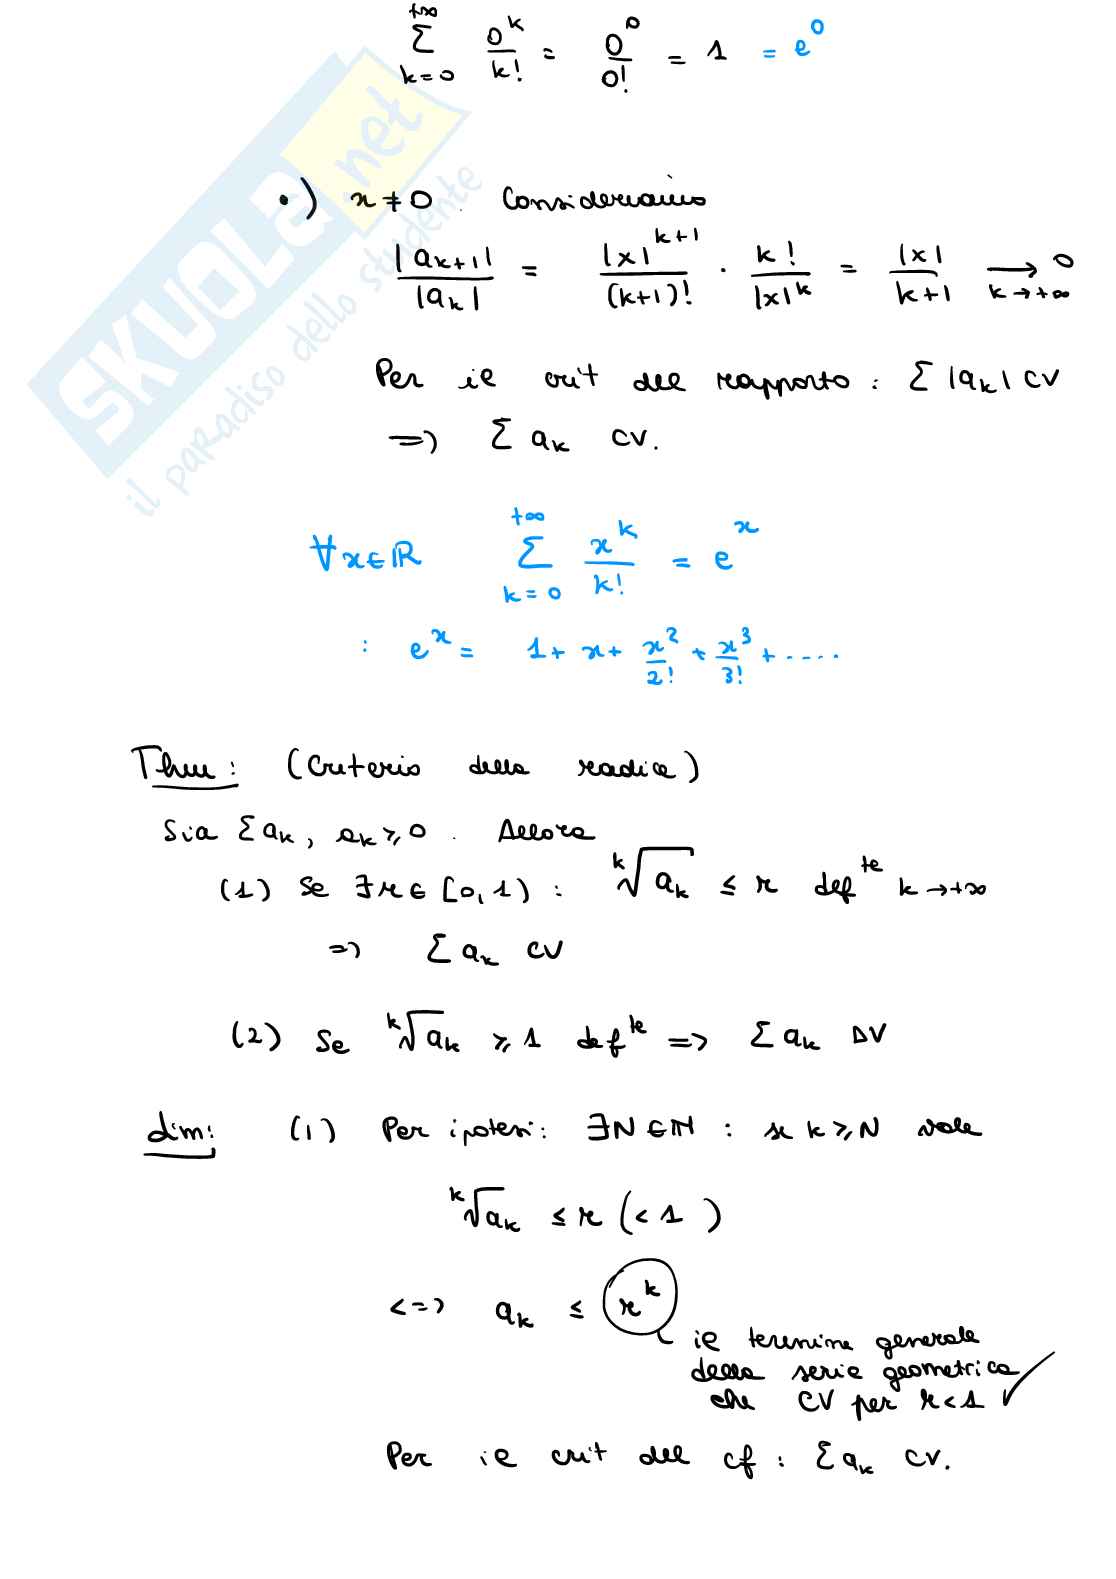 +∞
∑ 0^k/k! = 0^0/0! = 1 = e^0
k=0
•) x≠0. Consideriamo
|a_{k+1}|/|a_k| = |x|^{k+1}/(k+1)! · k!/|x|^k = |x|/(k+1) ⟶ 0
k→+∞
Per il crit del rapporto: ∑ |a_k| CV
=> ∑ a_k CV.
∀x∈ℝ ∑_{k=0}^{+∞} x^k/k! = e^x
: e^x = 1 + x + x^2/2! + x^3/3! + .....
Thm: (Criterio della radice)
Sia ∑a_k, a_k ≥ 0. Allora
(1) Se ∃r∈[0,1): ᵏ√a_k ≤ r def^te k→+∞
=> ∑ a_k CV
(2) Se ᵏ√a_k ≥ 1 def^te => ∑ a_k DV
dim: (1) Per ipotesi: ∃N∈ℕ : se k≥N vale
ᵏ√a_k ≤ r (<1)
<=> a_k ≤ r^k
il termine generale
della serie geometrica
che CV per r<1 ✓
Per il crit del cf: ∑a_k CV.
SKUOLA.net
il paradiso dello studente